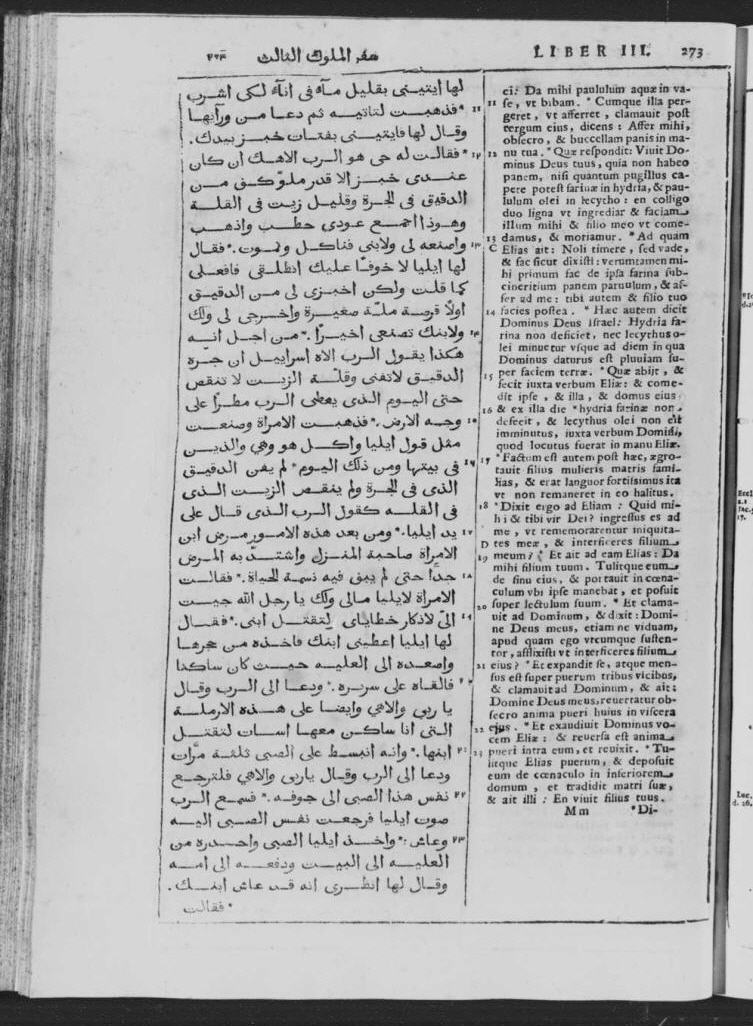 ٢٧٣ سفر الملوك الثالث
LIBER III. 273
لها ايتيني بقليل مآء في انآء لكي اشرب
١١ *فذهبت لتاتيه ثم دعا من ورآيها
وقال لها فايتيني بفتات خبز بيدك.
١٢ *فقالت له حي هو الرب الاهك ان كان
عندي خبز الا قدر ملوّ كف من
الدقيق في الجرة وقليل زيت في القلة
وهوذا اجمع عودي حطب واذهب
واصنعه لي ولابني فناكل ونموت. *فقال ١٣
لها ايليا لا خوفًا عليك انطلقي فافعلي
كما قلت ولكن اخبزي لي من الدقيق
اولًا قرصة ملّة صغيرة واخرجي لي ولك
ولابنك تصنعي اخيرًا. *من اجل انه ١٤
هكذا يقول الرب الاه اسراييل ان جرة
الدقيق لاتفنى وقلّة الزيت لا تنقص
حتى اليوم الذي يعطي الرب مطرًا على
وجه الارض. *فذهبت الامراة وصنعت ١٥
مثل قول ايليا واكل هو وهي والذين
في بيتها ومن ذلك اليوم *لم يفن الدقيق ١٦
الذي في الجرة ولم ينقص الزيت الذي
في القله كقول الرب الذي قال على
يد ايليا. *ومن بعد هذه الامور مرض ابن ١٧
الامراة صاحبة المنزل واشتدّ به المرض
جدًا حتى لم يبق فيه نسمة للحياة. *فقالت ١٨
الامراة لايليا مالي ولك يا رجل الله جيت
اليّ لاذكار خطاياي لتقتل ابني. *فقال ١٩
لها ايليا اعطيني ابنك فاخذه من حجرها
واصعده الى العليه حيث كان ساكنا
فالقاه على سريره. *ودعا الى الرب وقال ٢٠
يا ربي والاهي وايضا على هذه الارملة
التي انا ساكن معها اسات لتقتل
ابنها. *وانه انبسط على الصبي ثلثة مرّات ٢١
ودعا الى الرب وقال ياربي والاهي فلترجع
نفس هذا الصبي الى جوفه. *فسمع الرب ٢٢
صوت ايليا فرجعت نفس الصبي اليه
وعاش: *واخذ ايليا الصبي واحدره من ٢٣
العليه الى البيت ودفعه الى امه
وقال لها انظري انه قد عاش ابنك.
*فقالت
ei: Da mihi paululum aquæ in va-
11 se, vt bibam. * Cumque illa per-
geret, vt afferret, clamauit post
tergum eius, dicens: Affer mihi,
obsecro, & buccellam panis in ma-
12 nu tua. * Quæ respondit: Viuit Do-
minus Deus tuus, quia non habeo
panem, nisi quantum pugillus ca-
pere potest farinæ in hydria, & pau-
lulum olei in lecytho: en colligo
duo ligna vt ingrediar & faciam
illum mihi & filio meo vt come-
13 damus, & moriamur. * Ad quam
C Elias ait: Noli timere, sed vade,
& fac sicut dixisti: verumtamen mi-
hi primum fac de ipsa farina sub-
cineritium panem paruulum, & af-
fer ad me: tibi autem & filio tuo
14 facies postea. * Hæc autem dicit
Dominus Deus Israel: Hydria fa-
rina non deficiet, nec lecythus o-
lei minuetur vsque ad diem in qua
Dominus daturus est pluuiam su-
15 per faciem terræ. * Quæ abijt, &
fecit iuxta verbum Eliæ: & come-
dit ipse, & illa, & domus eius
16 & ex illa die * hydria farinæ non
defecit, & lecythus olei non est
imminutus, iuxta verbum Domini,
quod locutus fuerat in manu Eliæ.
17 * Factum est autem post hæc, ægro-
tauit filius mulieris matris fami-
lias, & erat languor fortissimus ita
vt non remaneret in eo halitus.
18 * Dixit ergo ad Eliam: Quid mi-
hi & tibi vir Dei? ingressus es ad
me, vt rememorarentur iniquita-
D tes meæ, & interficeres filium
19 meum? * Et ait ad eam Elias: Da
mihi filium tuum. Tulitque eum
de sinu eius, & portauit in cœna-
culum vbi ipse manebat, et posuit
20 super lectulum suum. * Et clama-
uit ad Dominum, & dixit: Domi-
ne Deus meus, etiam ne viduam,
apud quam ego vtcumque susten-
tor, afflixisti vt interficeres filium
21 eius? * Et expandit se, atque men-
sus est super puerum tribus vicibus,
& clamauit ad Dominum, & ait:
Domine Deus meus, reuertatur ob-
secro anima pueri huius in viscera
22 ejus. * Et exaudiuit Dominus vo-
cem Eliæ: & reuersa est anima
23 pueri intra eum, et reuixit. * Tu-
litque Elias puerum, & deposuit
eum de cœnaculo in inferiorem
domum, et tradidit matri suæ,
& ait illi: En viuit filius tuus.
Mm *Di-
Luc.